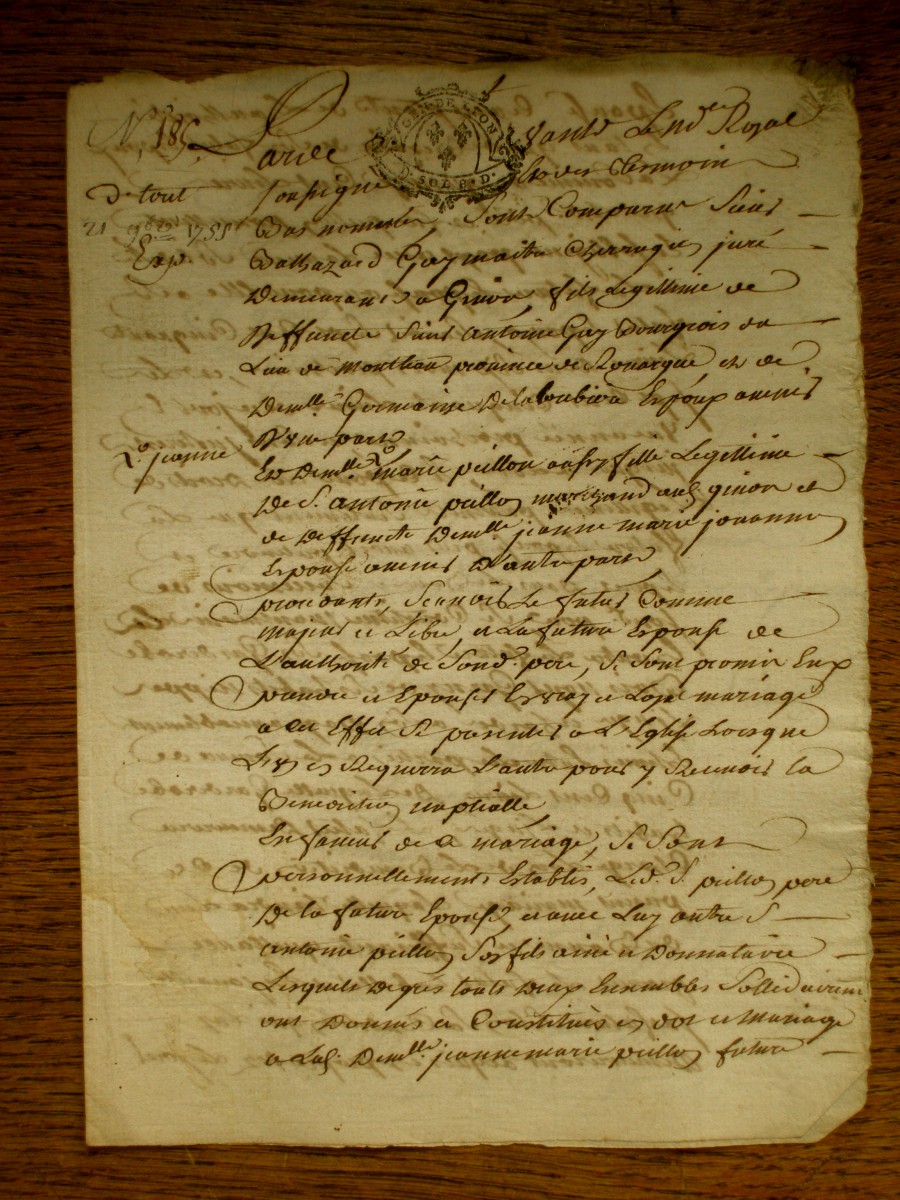 N.° 185.
Dot
21 9bre 1755
Exp.
GEN. DE LYON
D. SOLS. D.
Pardevant Le No.re Royal
soussigné et les temoins
Bas nommés, Sont Comparus Sieur
Balthazard Gay maitre Chirurgien juré
Demeurant a Givor, fils Legittime de
Deffunct Sieur Antoine Gay Bourgeois du
Lieu de province de Rouargue, et de
Demlle. Germaine Delaloubiere Epoux avenir
D'une part
1.° jeanne
Et Demlle. marie peillon aussy fille Legittime
De S. antoine peillon marchand aud. givor et
de Deffuncte Demlle. jeanne marie jouanne
Epouse avenir D'autre part
procedants, Scavoir Le futur Comme
majeur et Libre, et La future Epouse de
L'authorité de Sond. pere, Se Sont promis Eux
prendre et Epouser En vray et Loyal mariage
a cet Effet Se presenter a L'Eglise Lorsque
L'un en Requerra L'autre pour y Recevoir la
Benediction nuptialle
En faveur de ce mariage, Se Sont
personnellement Etablis, Led. S. peillon pere
De la future Epouse, et avec Luy autre S.
antoine peillon Son fils ainé et Donnataire
Lesquels De gré touts Deux Ensembles Sollidairem.
ont Donnés et Constitués en dot et mariage
a Lad. Demlle. jeanne marie peillon future